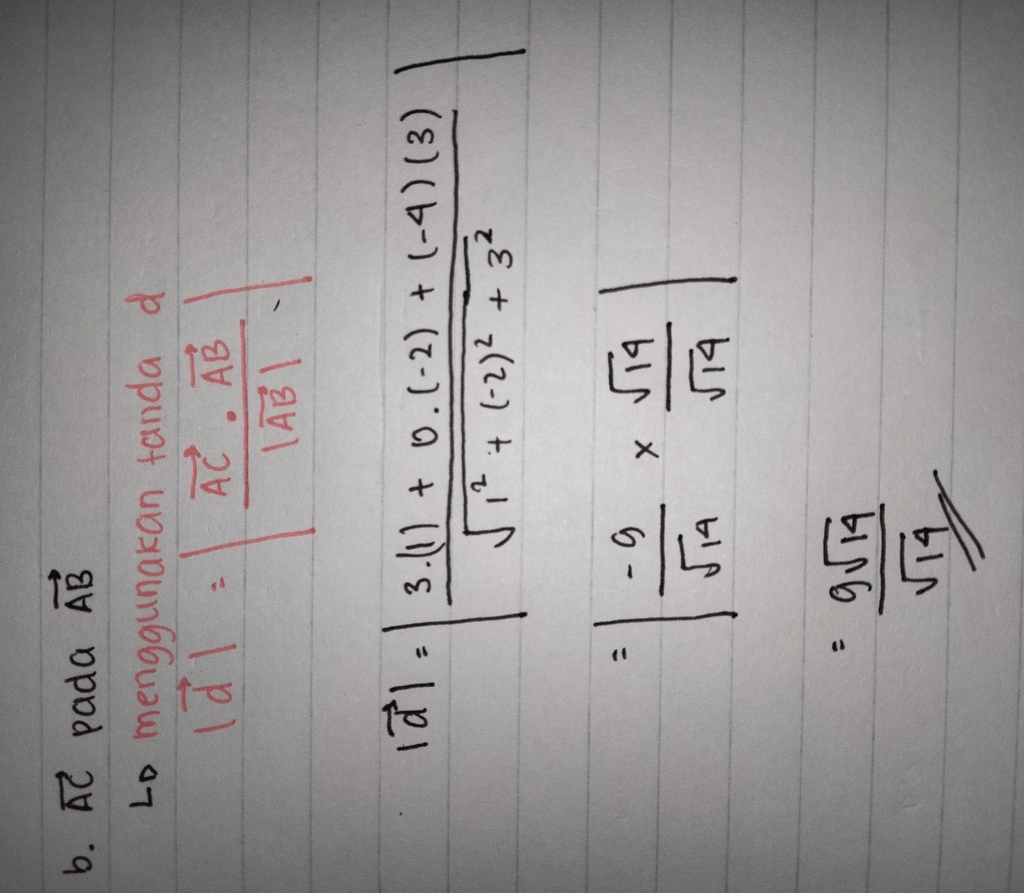 b. \overrightarrow{AC} pada \overrightarrow{AB}
↳ menggunakan tanda d
|\vec{d}| = | \frac{\overrightarrow{AC} . \overrightarrow{AB}}{|\overrightarrow{AB}|} |
|\vec{d}| = | \frac{3.(1) + 0.(-2) + (-4)(3)}{\sqrt{1² + (-2)² + 3²}} |
= | \frac{-9}{\sqrt{14}} x \frac{\sqrt{14}}{\sqrt{14}} |
= \frac{9\sqrt{14}}{\sqrt{14}} //